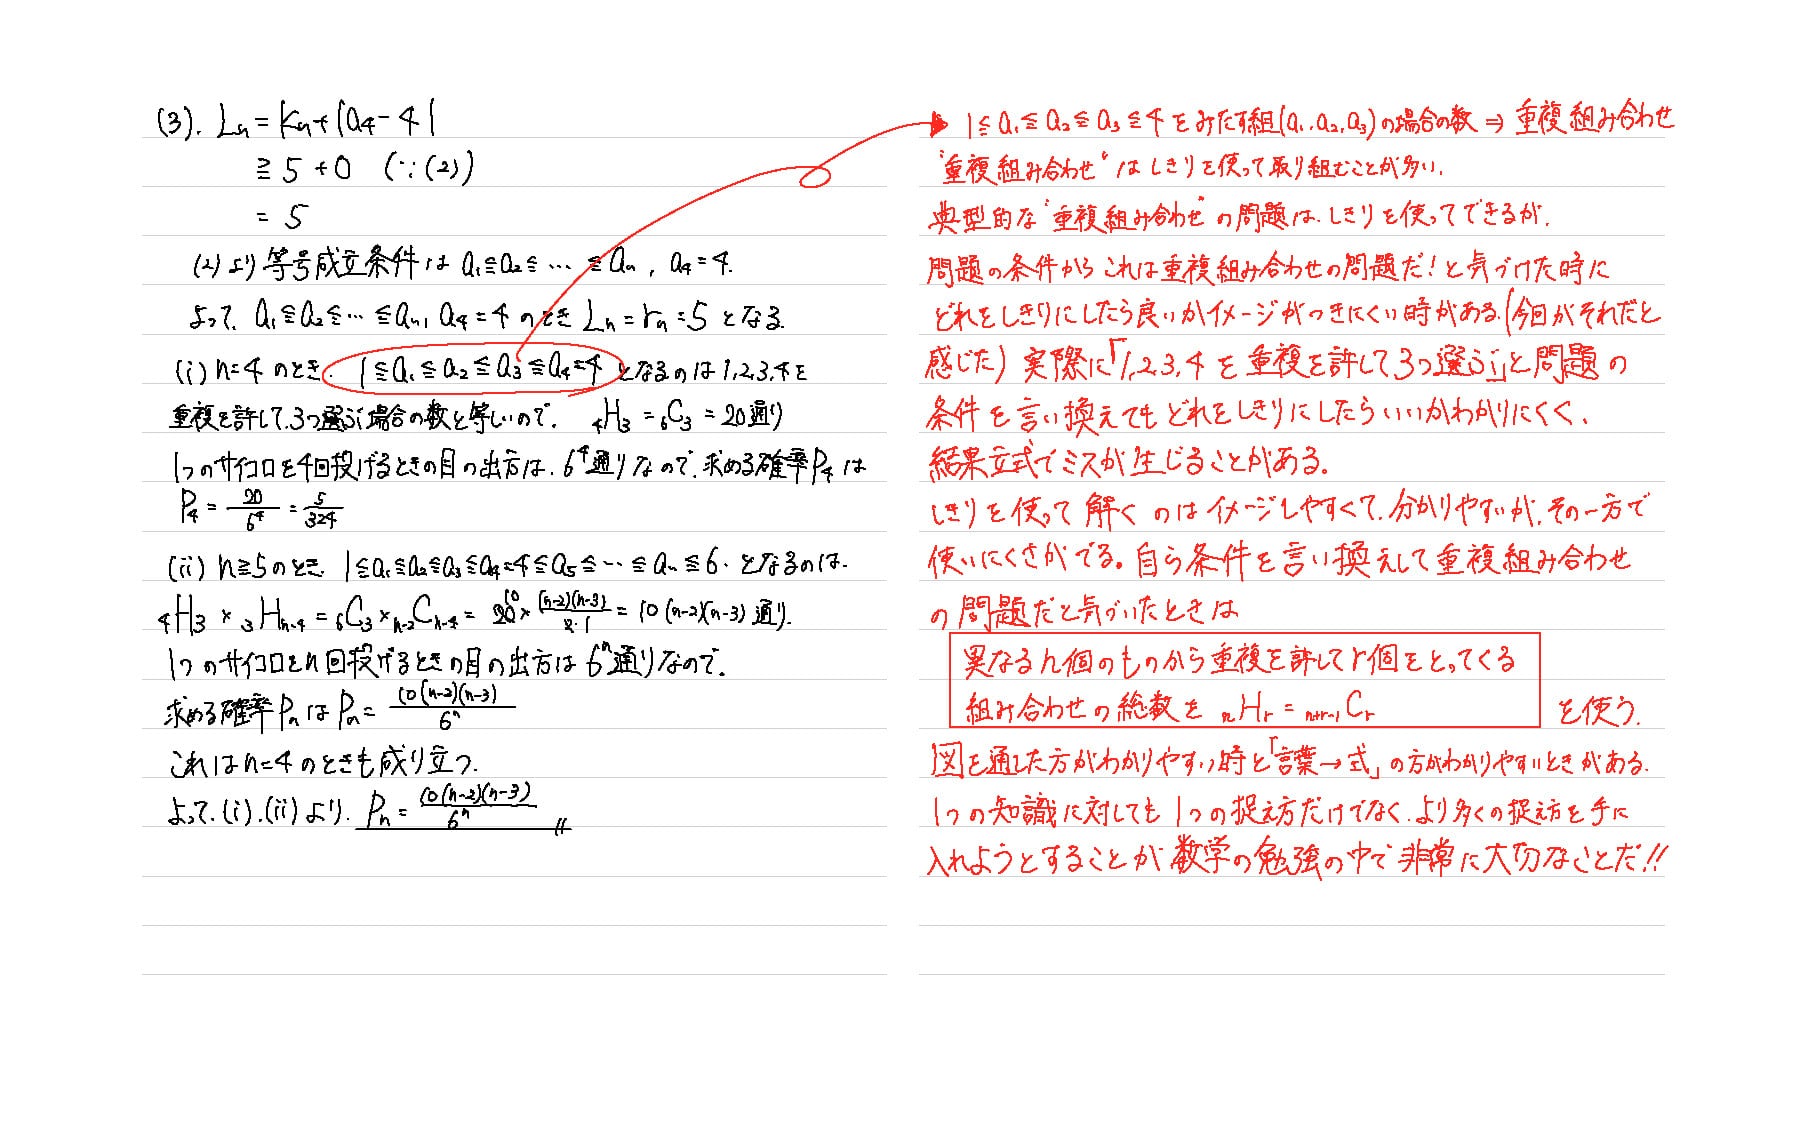 (3). Ln = Kn + |a4 - 4|
≧ 5 + 0 (∵(2))
= 5
(2)より等号成立条件は a1≦a2≦…≦an, a4=4.
よって, a1≦a2≦…≦an, a4=4 のとき Ln=rn=5 となる
(i) n=4 のとき. 1≦a1≦a2≦a3≦a4=4 となるのは 1,2,3,4を
重複を許して, 3つ選ぶ場合の数と等しいので. 4H3 = 6C3 = 20通り
1つのサイコロを4回投げるときの目の出方は, 6^4通りなので, 求める確率P4は
P4 = 20/6^4 = 5/324
(ii) n≧5のとき 1≦a1≦a2≦a3≦a4=4≦a5≦…≦an≦6. となるのは.
4H3 × 3Hn-4 = 6C3 × n-2Cn-4 = 20 10 × (n-2)(n-3)/2・1 = 10(n-2)(n-3)通り.
1つのサイコロをn回投げるときの目の出方は6^n通りなので.
求める確率Pnは Pn = 10(n-2)(n-3)/6^n
これはn=4のときも成り立つ.
よって, (i), (ii)より. Pn = 10(n-2)(n-3)/6^n 〃
1≦a1≦a2≦a3≦4をみたす組(a1, a2, a3)の場合の数⇒重複組み合わせ
"重複組み合わせ"はしきりを使って取り組むことが多い.
典型的な"重複組み合わせ"の問題は,しきりを使ってできるが,
問題の条件からこれは重複組み合わせの問題だ!と気づけた時に
どれをしきりにしたら良いかイメージがつきにくい時がある.(今回がそれだと
感じた)実際に「1,2,3,4を重複を許して3つ選ぶ」と問題の
条件を言い換えてもどれをしきりにしたらいいかわかりにくく,
結果立式でミスが生じることがある.
しきりを使って解くのはイメージしやすくて,分かりやすいが,その一方で
使いにくさがでる。自ら条件を言い換えして重複組み合わせ
の問題だと気づいたときは
異なるn個のものから重複を許してr個をとってくる
組み合わせの総数を nHr = n+r-1Cr を使う.
図を通した方がわかりやすい時と「言葉→式」の方がわかりやすいときがある.
1つの知識に対しても1つの捉え方だけでなく,より多くの捉え方を手に
入れようとすることが数学の勉強の中で非常に大切なことだ!!